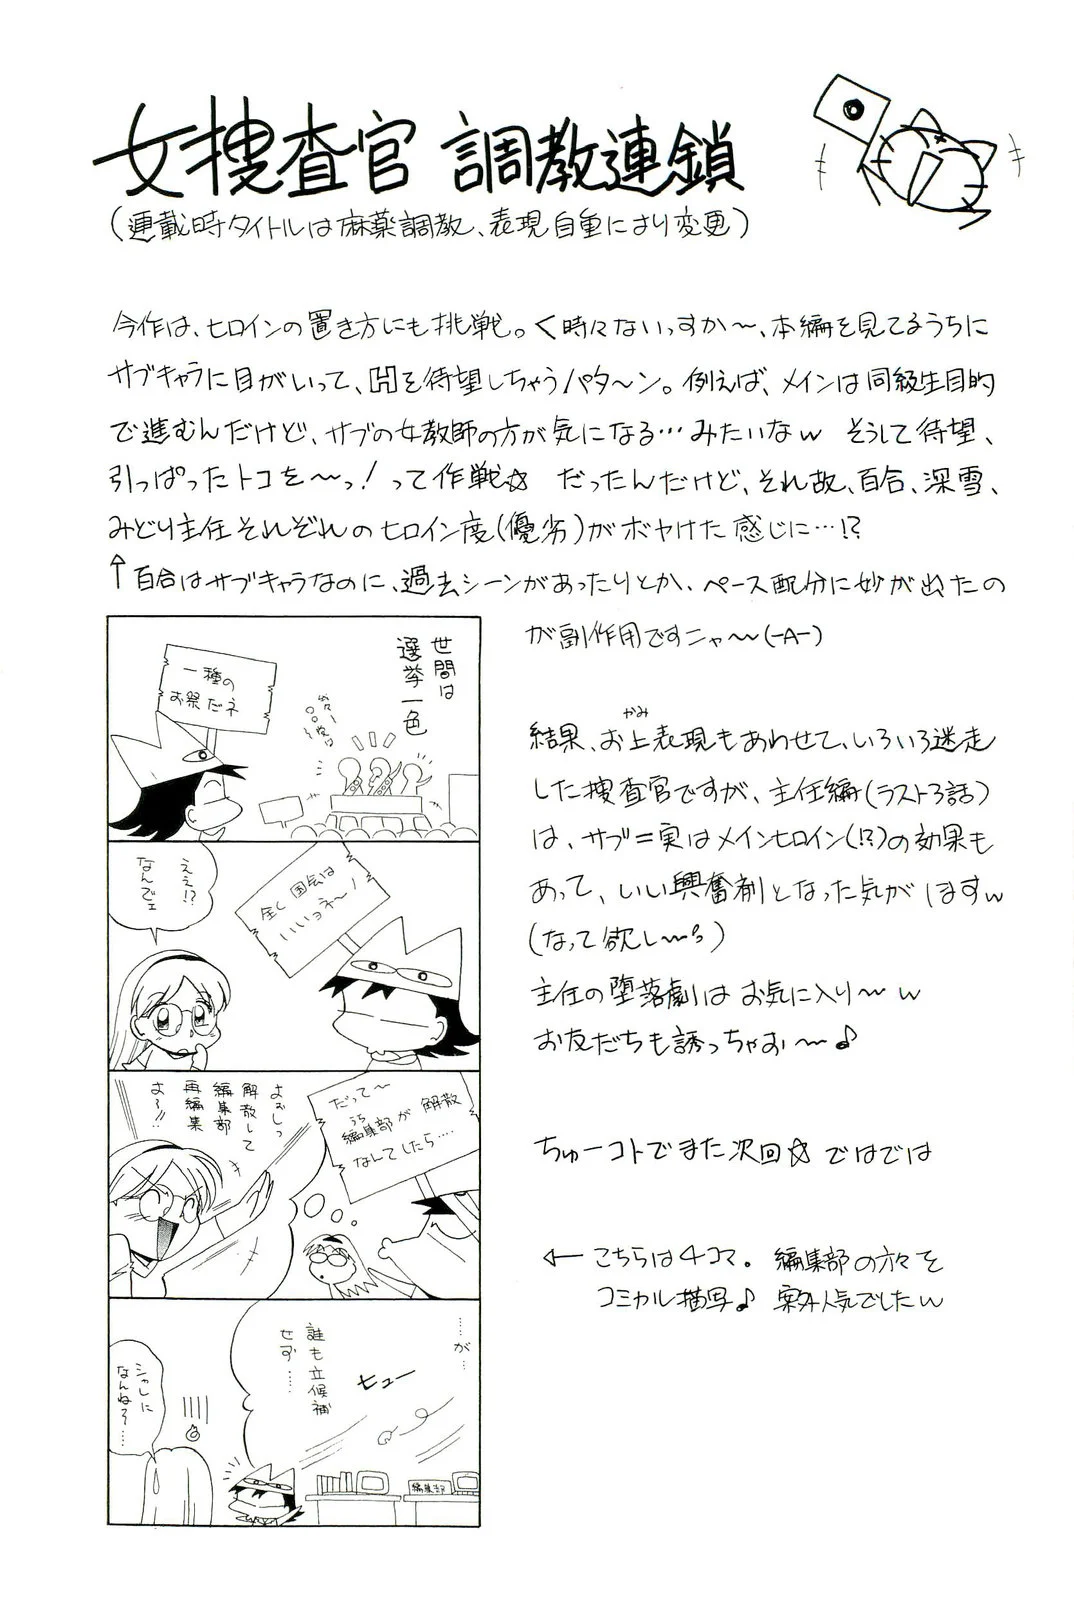 女捜査官 調教連鎖
(連載時タイトルは麻薬調教、表現自重により変更)
今作は、ヒロインの置き方にも挑戦。く時々ないっすか〜、本編を見てるうちに
サブキャラに目がいって、Hを待望しちゃうパタ〜ン。例えば、メインは同級生目的
で進むんだけど、サブの女教師の方が気になる…みたいなw そうして待望、
引っぱったトコを〜っ!って作戦☆ だったんだけど、それ故、百合、深雪、
みどり主任それぞれのヒロイン度(優劣)がボヤけた感じに…!?
↑百合はサブキャラなのに、過去シーンがあったりとか、ペース配分に妙が出たの
が副作用ですニャ〜(-A-)
結果、お上表現もあわせて、いろいろ迷走
かみ
した捜査官ですが、主任編(ラスト3話)
は、サブ=実はメインヒロイン(!?)の効果も
あって、いい興奮剤となった気がしますw
(なって欲し〜
主任の堕落劇はお気に入り〜w
お友だちも誘っちゃお〜♪
ちゅーコトでまた次回☆ ではでは
←こちらは4コマ。編集部の方々を
コミカル描写♪ 案外人気でしたw
世間は
選挙一色
一種の
お祭だネ
全く国会は
いいョネ〜!
ええ!?
なんでェ
だって〜
うち
編集部が解散
なんてしたら….
よぉしっ
解散して
編集部
再編集
よ〜!!
……が…
誰も立候補
せず……
ヒュー
編集部
シュしに
なんね〜……